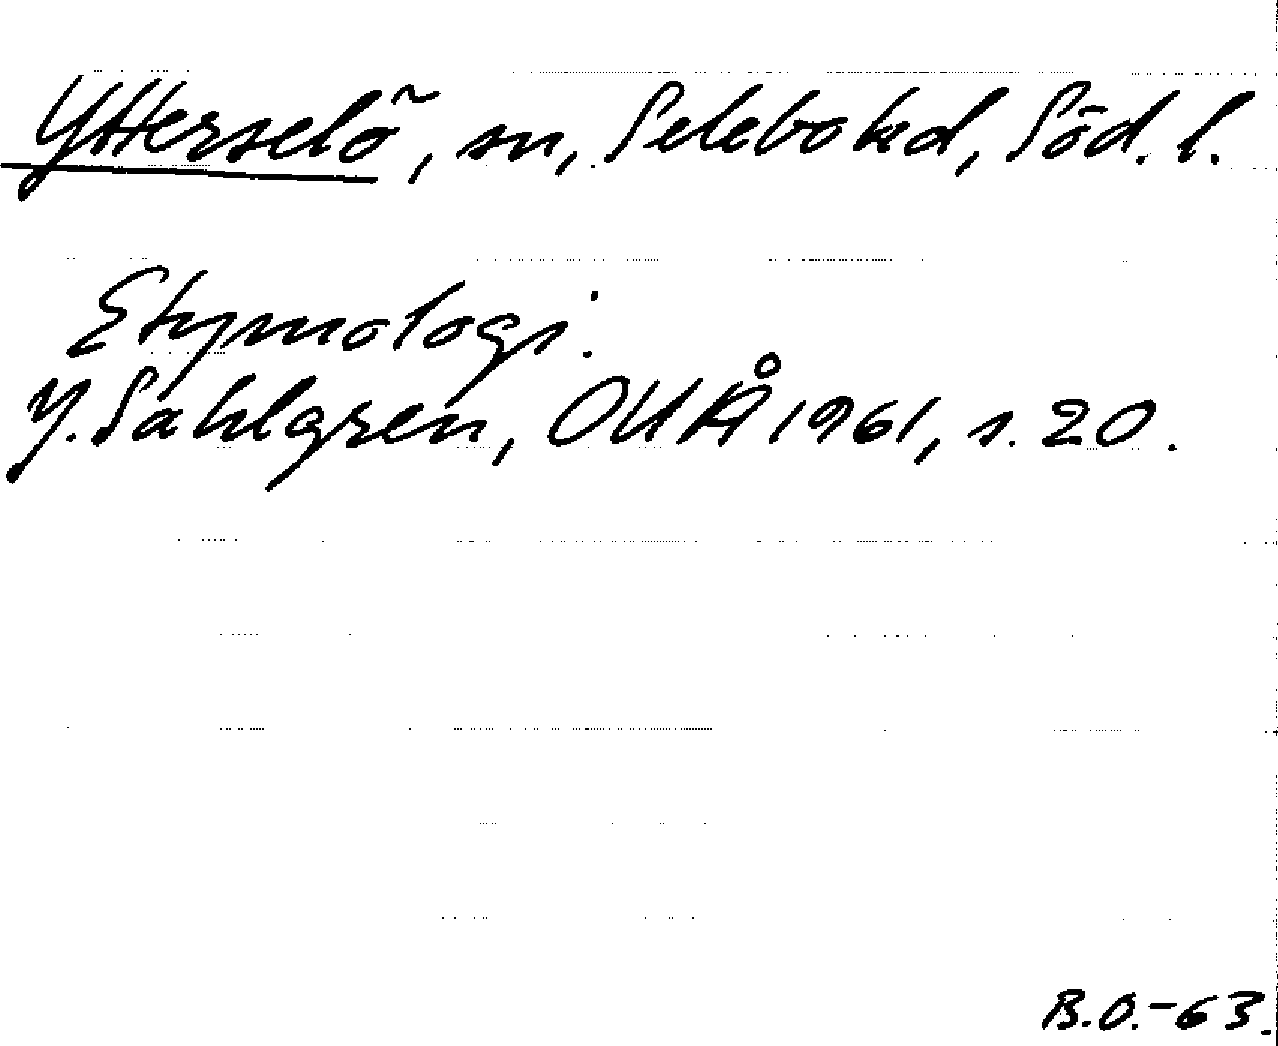 Ytterselö, sn, Selebo hd, Söd. l.
Etymologi.
J. Sahlgren, OUÅ 1961, s. 20.
B.O.-63.